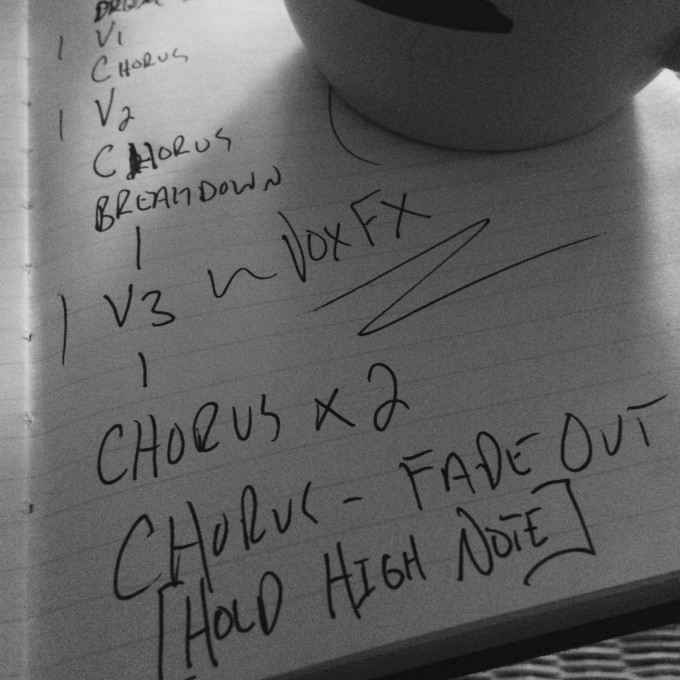 | V1
CHORUS
| V2
CHORUS
BREAKDOWN
|
| V3 ~ VOX FX
|
CHORUS x 2
CHORUS - FADE OUT
[HOLD HIGH NOTE]